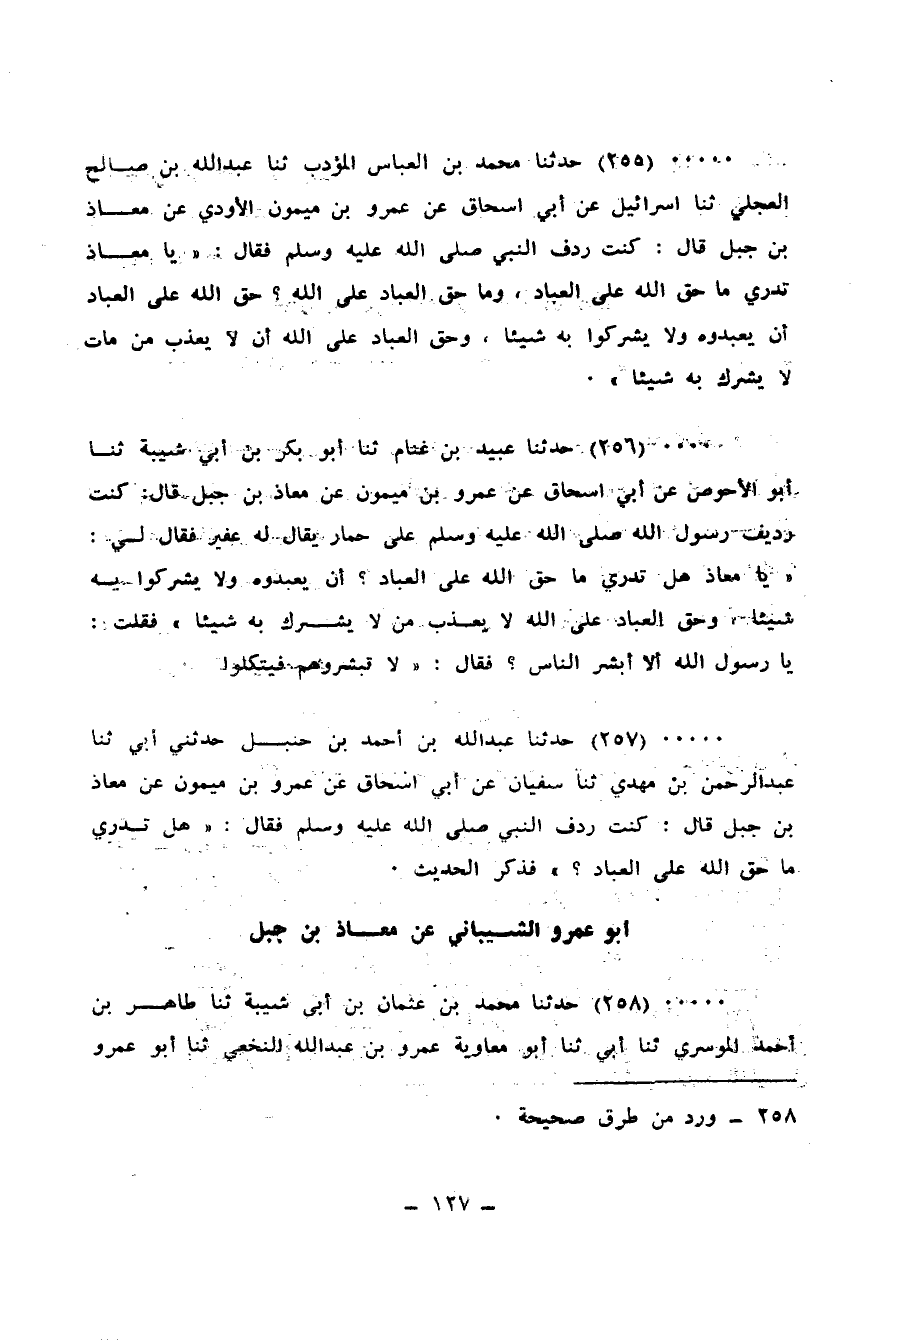 ٠٠٠٠٠ (٢٥٥) حدثنا محمد بن العباس المؤدب ثنا عبدالله بن صـالح
العجلي ثنا اسرائيل عن أبي اسحاق عن عمرو بن ميمون الأودي عن معـــاذ
بن جبل قال : كنت ردف النبي صلى الله عليه وسلم فقال : « يا معـــاذ
تدري ما حق الله على العباد ، وما حق العباد على الله ؟ حق الله على العباد
أن يعبدوه ولا يشركوا به شيئا ، وحق العباد على الله أن لا يعذب من مات
لا يشرك به شيئا » ٠
٠٠٠٠٠ (٢٥٦) حدثنا عبيد بن غنام ثنا أبو بكر بن أبي شيبة ثنــا
أبو الأحوص عن أبي اسحاق عن عمرو بن ميمون عن معاذ بن جبل قال: كنت
رديف رسول الله صلى الله عليه وسلم على حمار يقال له عفير فقال لــي :
« يا معاذ هل تدري ما حق الله على العباد ؟ أن يعبدوه ولا يشركوا بــه
شيئا ، وحق العباد على الله لا يعـذب من لا يشـــرك به شيئا » فقلت :
يا رسول الله ألا أبشر الناس ؟ فقال : « لا تبشروهم فيتكلوا
٠٠٠٠٠ (٢٥٧) حدثنا عبدالله بن أحمد بن حنبـــل حدثني أبي ثنا
عبدالرحمن بن مهدي ثنا سفيان عن أبي اسحاق عن عمرو بن ميمون عن معاذ
بن جبل قال : كنت ردف النبي صلى الله عليه وسلم فقال : « هل تــدري
ما حق الله على العباد ؟ » فذكر الحديث ٠
ابو عمرو الشـيباني عن معـــاذ بن جبل
٠٠٠٠٠ (٢٥٨) حدثنا محمد بن عثمان بن أبي شيبة ثنا طاهـــر بن
أحمد الموسري ثنا أبي ثنا أبو معاوية عمرو بن عبدالله النخعي ثنا أبو عمرو
٢٥٨ ــ ورد من طرق صحيحة ٠
ــ ١٢٧ ــ